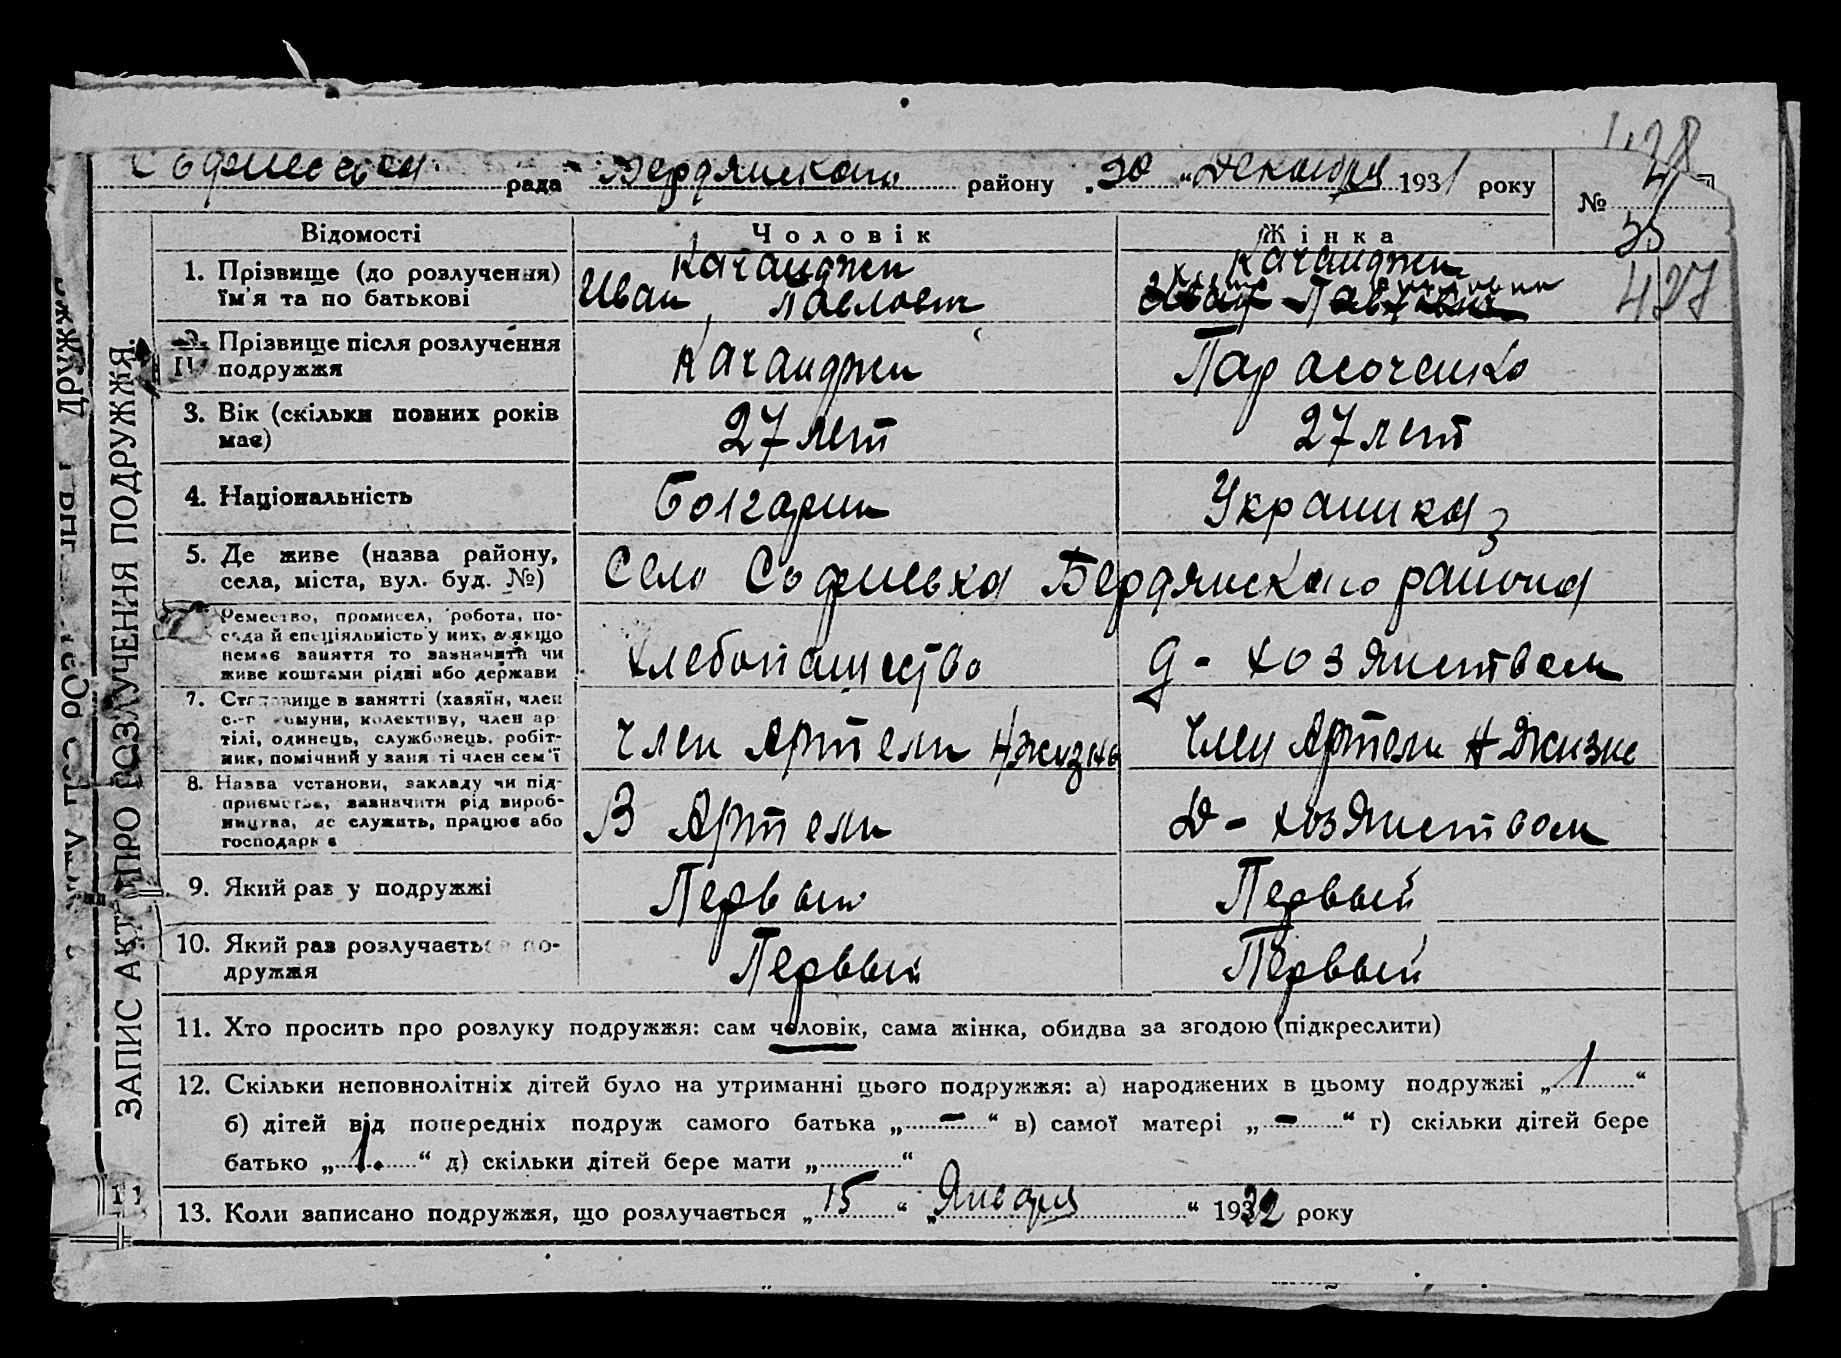 428
Софиевская рада Бердянского району „30“ Декабря 1931 року №
35
Відомості Чоловік Жінка
427
1. Прізвище (до розлучення) їм'я та по батькові
Качанджи
Иван Павлович
Качанджи
2. Прізвище після розлучення подружжя
Качанджи
Парасоченко
3. Вік (скільки повних років має)
27 лет
27 лет
4. Національність
Болгарин
Украинка
5. Де живе (назва району, села, міста, вул. буд. №)
Село Софиевка Бердянского района
Ремество, промисел, робота, по-
сада й спеціяльність у них, а якщо
немає заняття то зазначити чи
живе коштами рідні або держави
Хлебопашество
Д - хозяйством
7. Становище в занятті (хазяїн, член
комуни, колективу, член ар-
тілі, одинець, службовець, робіт-
ник, помічний у занятті член сем'ї
Член Артели Н Жизнь
Член Артели Н Жизнь
8. Назва установи, закладу чи під-
приємства, зазначити рід вироб-
ництва, де служить, працює або
господарює
В Артели
Д - хозяйством
9. Який раз у подружжі
Первый
Первый
10. Який раз розлучається по-
дружжя
Первый
Первый
11. Хто просить про розлуку подружжя: сам чоловік, сама жінка, обидва за згодою (підкреслити)
12. Скільки неповнолітніх дітей було на утриманні цього подружжя: а) народжених в цьому подружжі „1“
б) дітей від попередніх подруж самого батька „-“ в) самої матері „-“ г) скільки дітей бере
батько „1.“ д) скільки дітей бере мати „“
13. Коли записано подружжя, що розлучається „15“ „Января“ 1932 року
ЗАПИС АКТ ПРО РОЗЛУЧЕННЯ ПОДРУЖЖЯ.